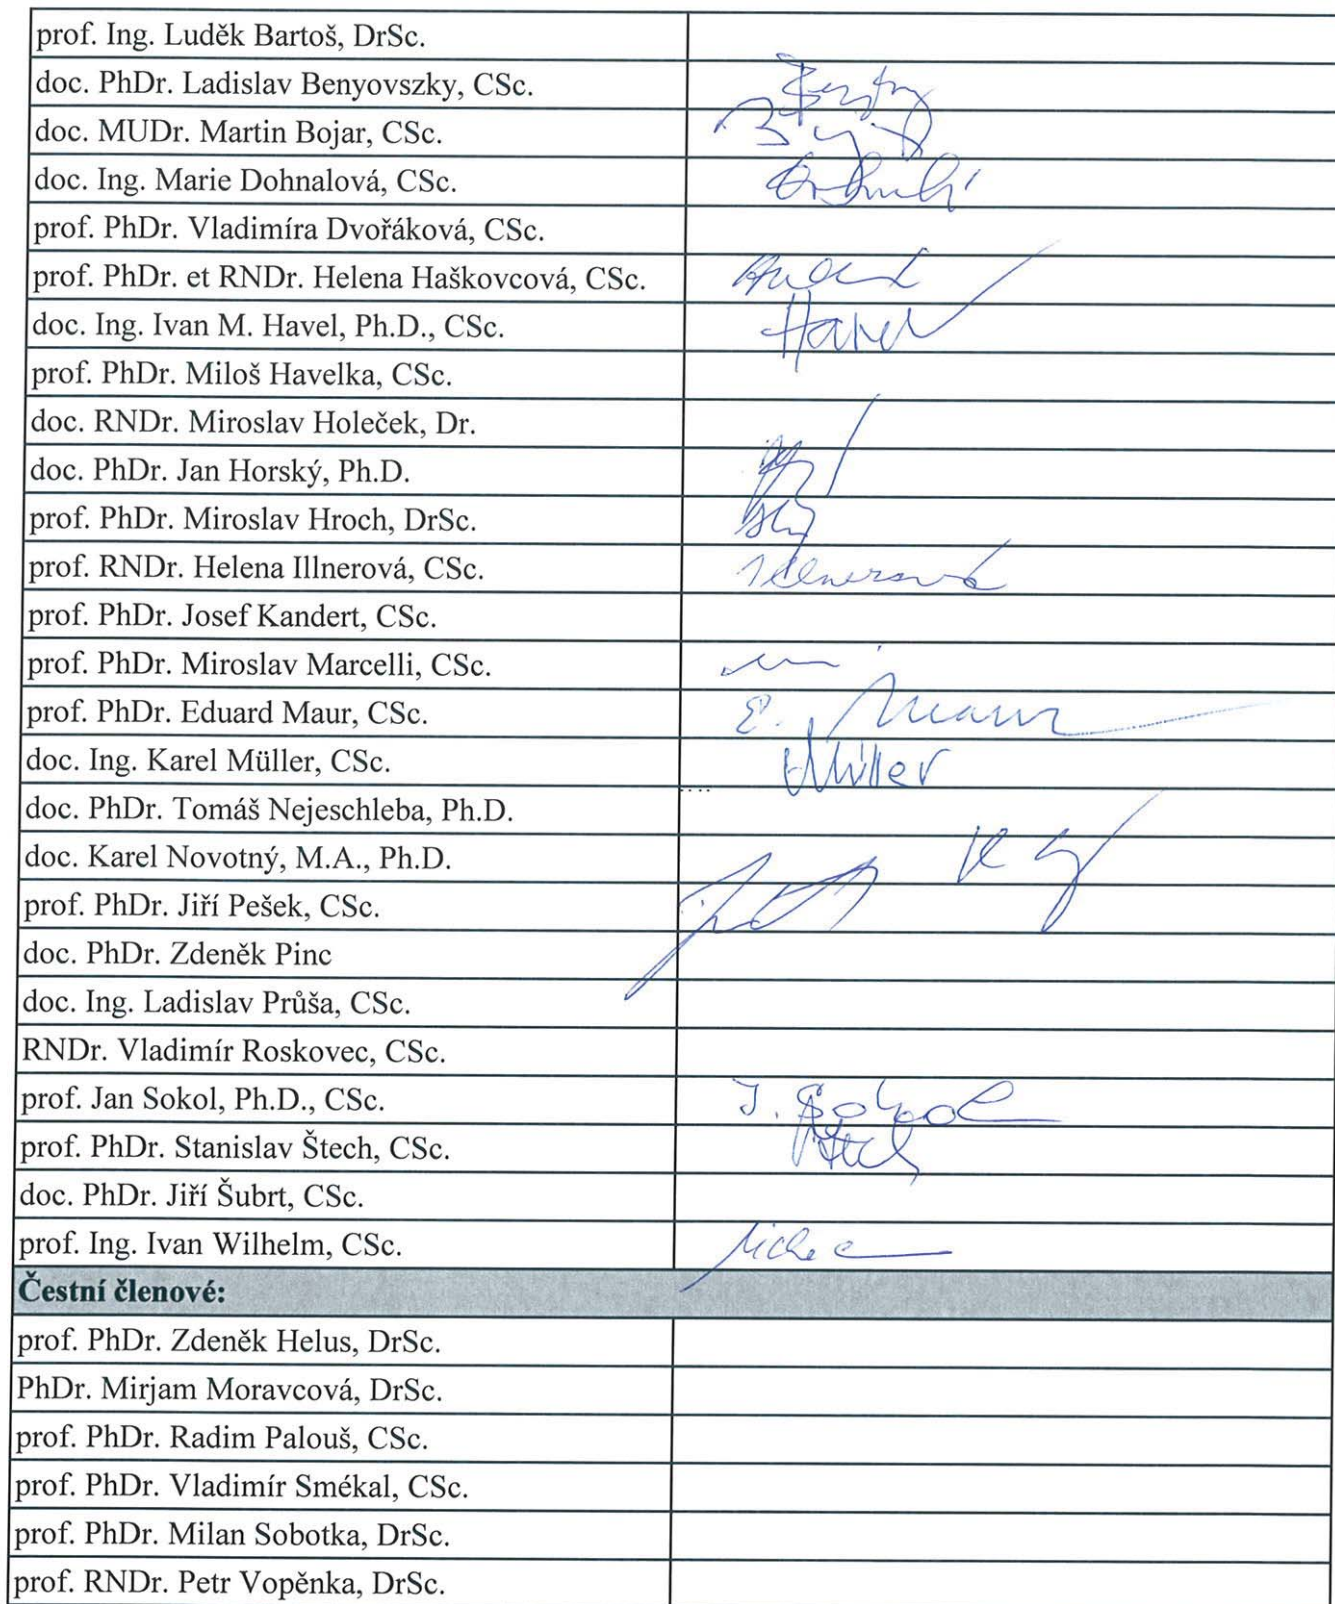 prof. Ing. Luděk Bartoš, DrSc.
doc. PhDr. Ladislav Benyovszky, CSc.
doc. MUDr. Martin Bojar, CSc.
doc. Ing. Marie Dohnalová, CSc.
prof. PhDr. Vladimíra Dvořáková, CSc.
prof. PhDr. et RNDr. Helena Haškovcová, CSc.
doc. Ing. Ivan M. Havel, Ph.D., CSc. Havel
prof. PhDr. Miloš Havelka, CSc.
doc. RNDr. Miroslav Holeček, Dr.
doc. PhDr. Jan Horský, Ph.D.
prof. PhDr. Miroslav Hroch, DrSc.
prof. RNDr. Helena Illnerová, CSc. Illnerová
prof. PhDr. Josef Kandert, CSc.
prof. PhDr. Miroslav Marcelli, CSc.
prof. PhDr. Eduard Maur, CSc. E. Maur
doc. Ing. Karel Müller, CSc. Müller
doc. PhDr. Tomáš Nejeschleba, Ph.D.
doc. Karel Novotný, M.A., Ph.D.
prof. PhDr. Jiří Pešek, CSc.
doc. PhDr. Zdeněk Pinc
doc. Ing. Ladislav Průša, CSc.
RNDr. Vladimír Roskovec, CSc.
prof. Jan Sokol, Ph.D., CSc. J. Sokol
prof. PhDr. Stanislav Štech, CSc. Štech
doc. PhDr. Jiří Šubrt, CSc.
prof. Ing. Ivan Wilhelm, CSc.
Čestní členové:
prof. PhDr. Zdeněk Helus, DrSc.
PhDr. Mirjam Moravcová, DrSc.
prof. PhDr. Radim Palouš, CSc.
prof. PhDr. Vladimír Smékal, CSc.
prof. PhDr. Milan Sobotka, DrSc.
prof. RNDr. Petr Vopěnka, DrSc.